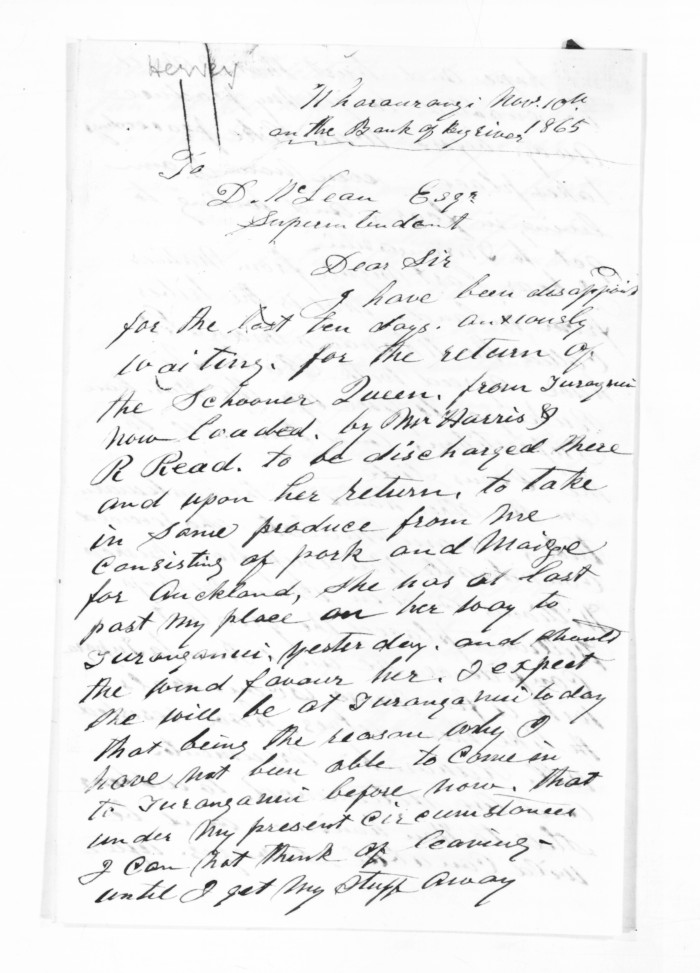 Hervey
Wharaurangi Nov. 10th
on the Bank of big river 1865
To
D. McLean Esqr
Superintendant
Dear Sir
I have been disappoint
for the last ten days. anxiously
waiting. for the return of
the Schooner Queen. from Turangnui
now loaded. by Mr Harris &
R Read. to be discharged there
and upon her return. to take
in some produce from me
Consisting of pork and Maize
for Auckland, she has at last
past my place on her way to
Turanganui. yesterday. and should
the wind favour her. I expect
she will be at Turanganui today
that being the reason why I
have not been able to Come in
to Turanganui before now. that
under my present Circumstances
I Can not think of leaving-
until I get my stuff away